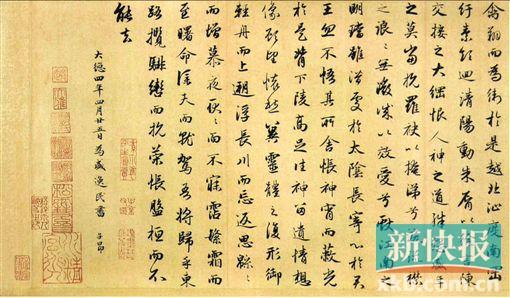 禽翔而為衛於是越北沚度南岡
紆素領迴清陽動朱脣以陳
交接之大綱恨人神之道殊
之莫當抗羅袂以掩涕兮
之浪浪無微情以效愛兮獻江南之
明璫雖潛處於太陰長寄心於君
王忽不悟其所舍悵神宵而蔽光
於是背下陵高足往神留遺情想
像顧望懷愁冀靈體之復形御
輕舟而上遡浮長川而忘返思緜〻
而增慕夜耿〻而不寐霑繁霜而
至曙命僕夫而就駕吾將歸乎東
路攬騑轡而抗策悵盤桓而不
能去
大德四年四月廿五日為盛逸民書 子昂
新快报
xkb.com.cn